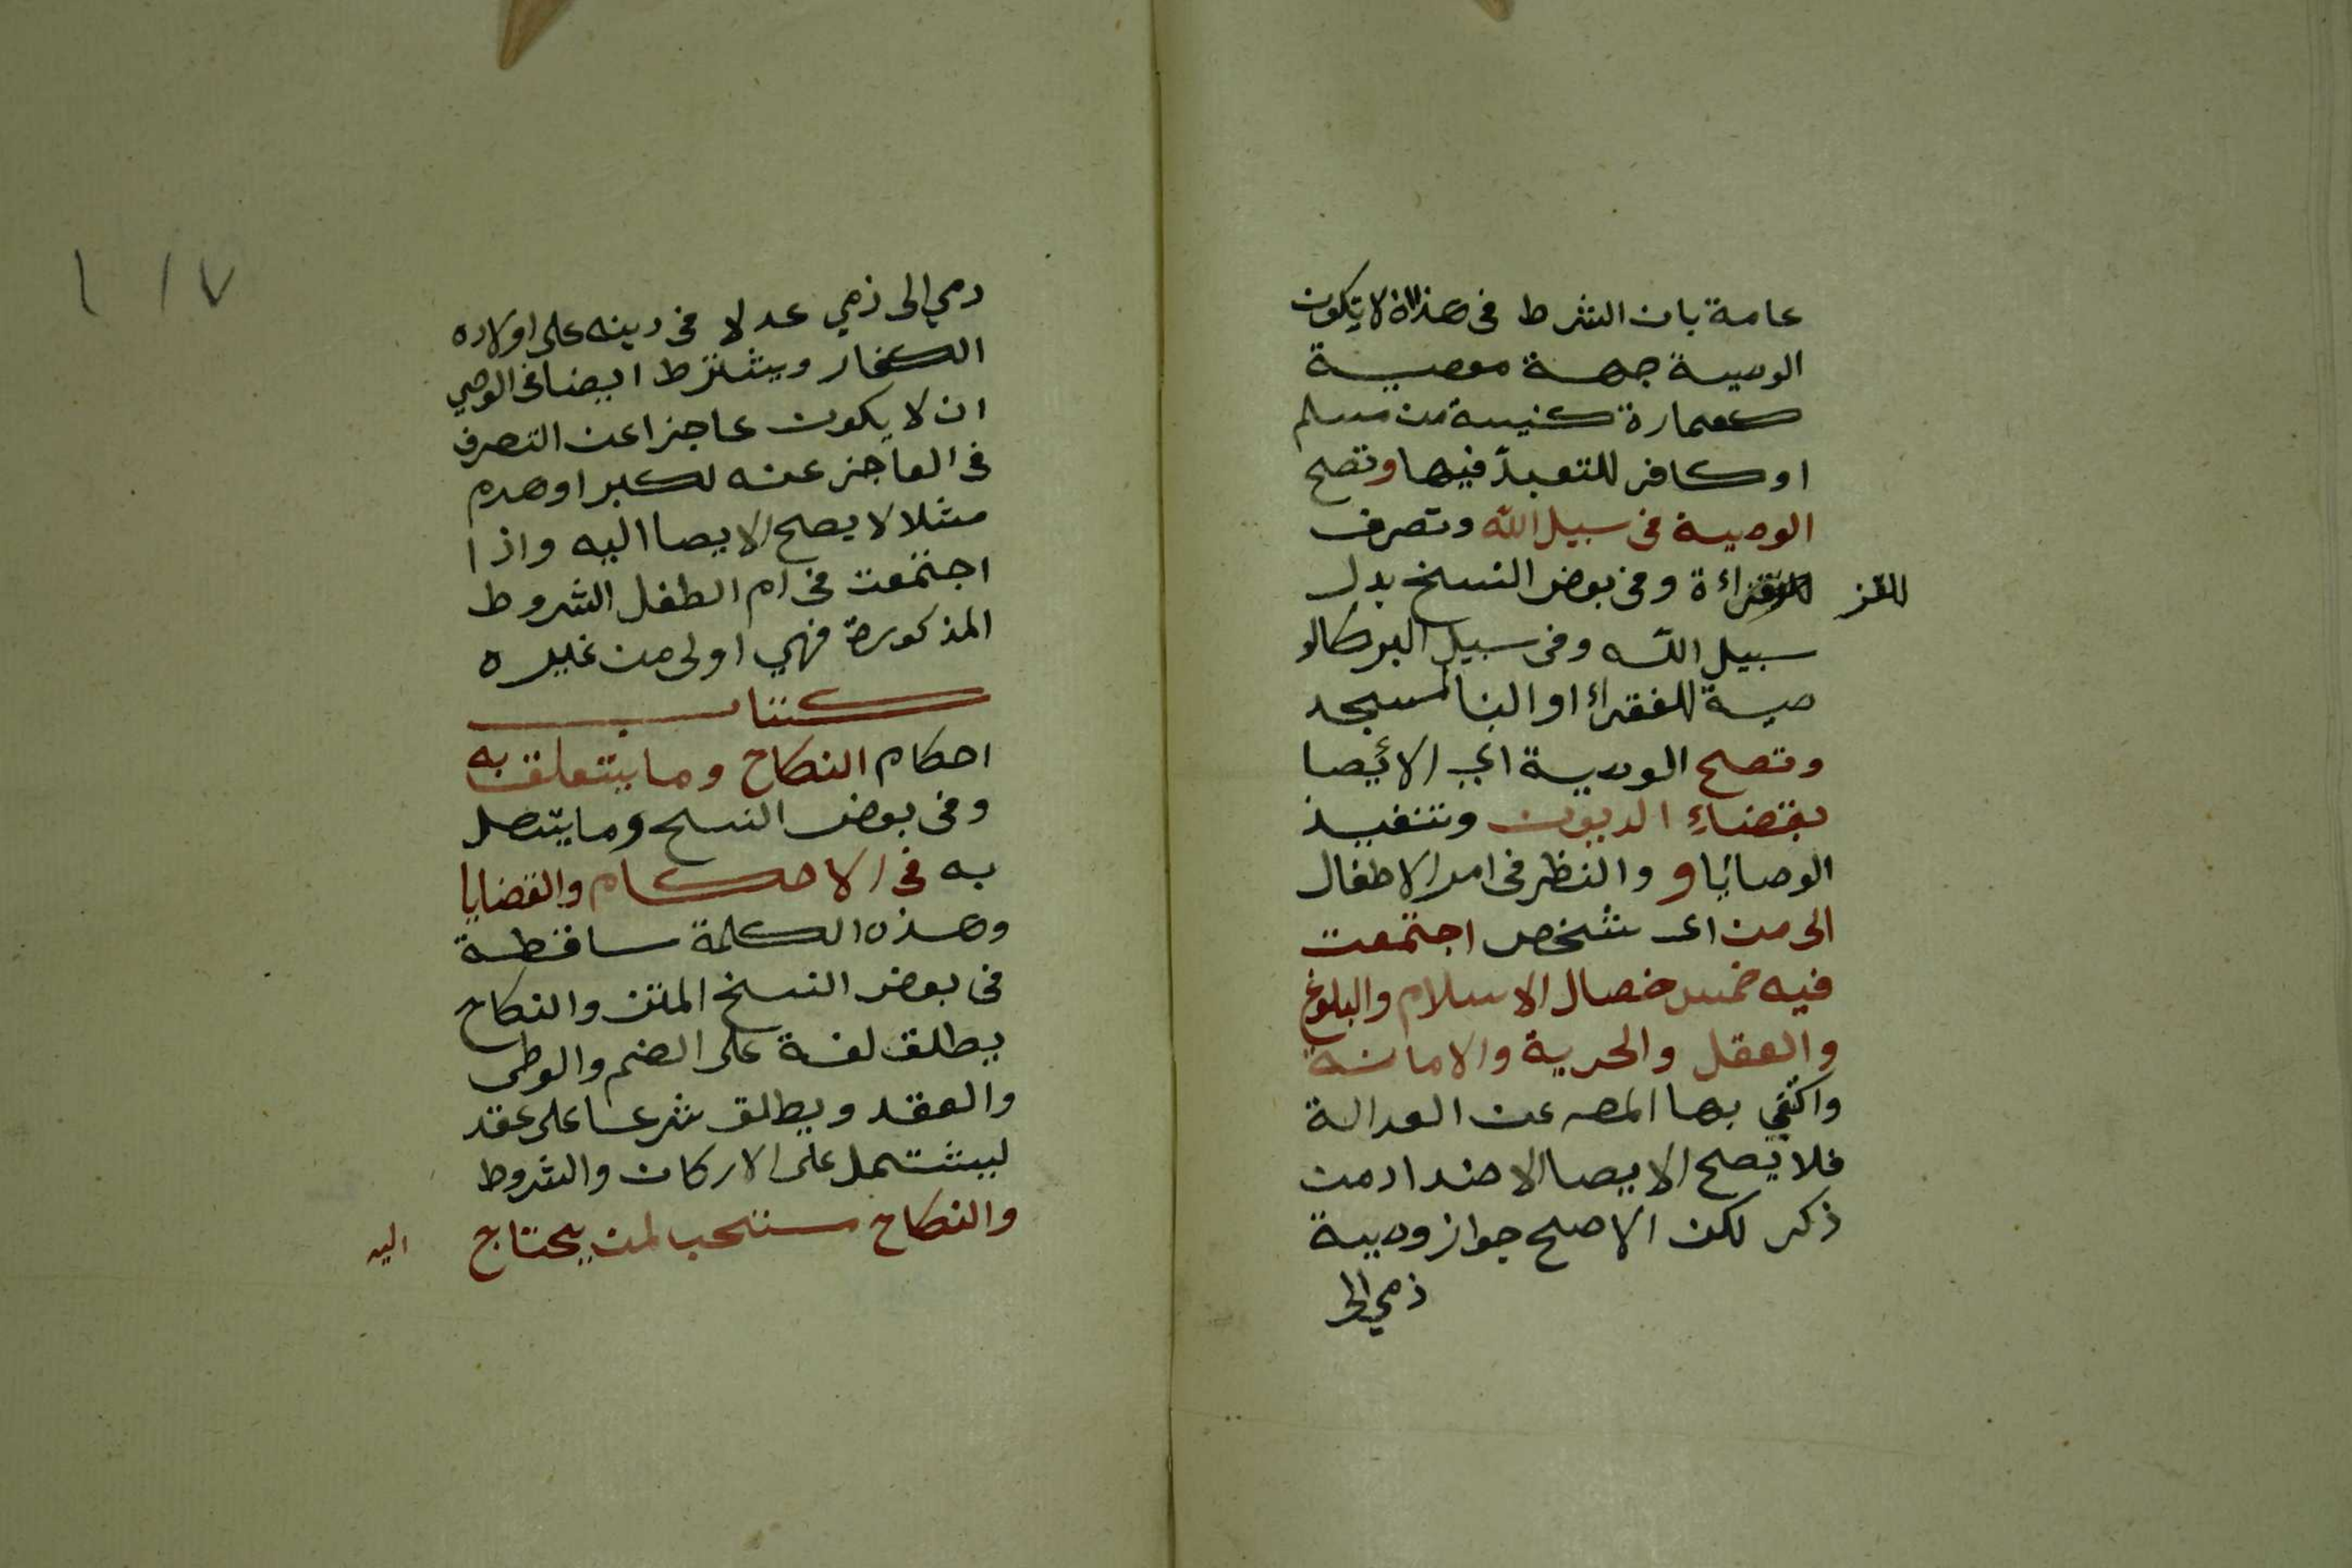 عامة بان الشرط في هذا ان لا تكون
الوصية جهة معصية
كعمارة كنيسة من مسلم
او كافر للتعبد فيها وتصح
الوصية في سبيل الله وتصرف
للغز
للغزاة وفي بعض النسخ بدل
سبيل الله وفي سبيل البر كالو
صية للفقراء او البنا لمسجد
وتصح الوصية اي الائيصا
بقضاء الديون وتنفيذ
الوصايا و والنظر في امر الاطفال
الى من اي شخص اجتمعت
فيه خمس خصال الاسلام والبلوغ
والعقل والحرية والامانة
واكتفي بها المصه عن العدالة
فلا يصح الايصا لاضداد من
ذكر لكن الاصح جواز وصية
ذمي الى
١١٧
دمي الى ذمي عدلا في دينه على اولاده
الكفار ويشترط ايضا في الوصي
ان لا يكون عاجزا عن التصرف
في العاجز عنه لكبر او هدم
مثلا لا يصح الايصا اليه واذا
اجتمعت في ام الطفل الشروط
المذكورة فهي اولى من غيره
كتاب
احكام النكاح وما يتعلق به
وفي بعض النسح وما يتصل
به في الاحكام والقضايا
وهذه الكلمة ساقطة
في بعض النسخ المتن والنكاح
يطلق لغة على الضم والوطى
والعقد ويطلق شرعا على عقد
ليشتمل على الاركان والشروط
والنكاح مستحب لمن يحتاج
اليه